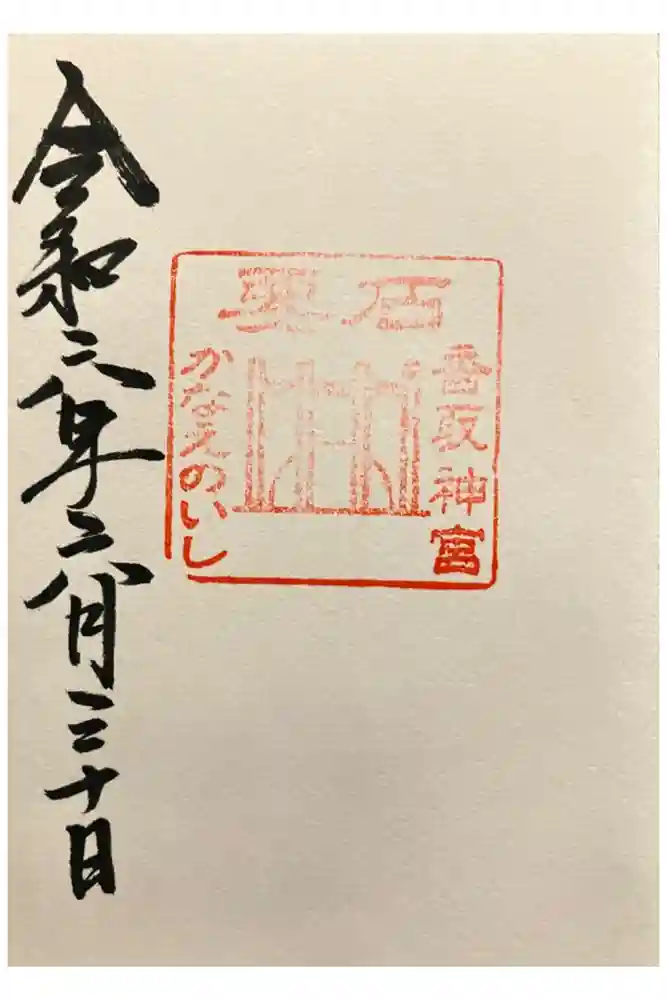 要石
香取神宮
かなえのいし
令和六年六月三十日